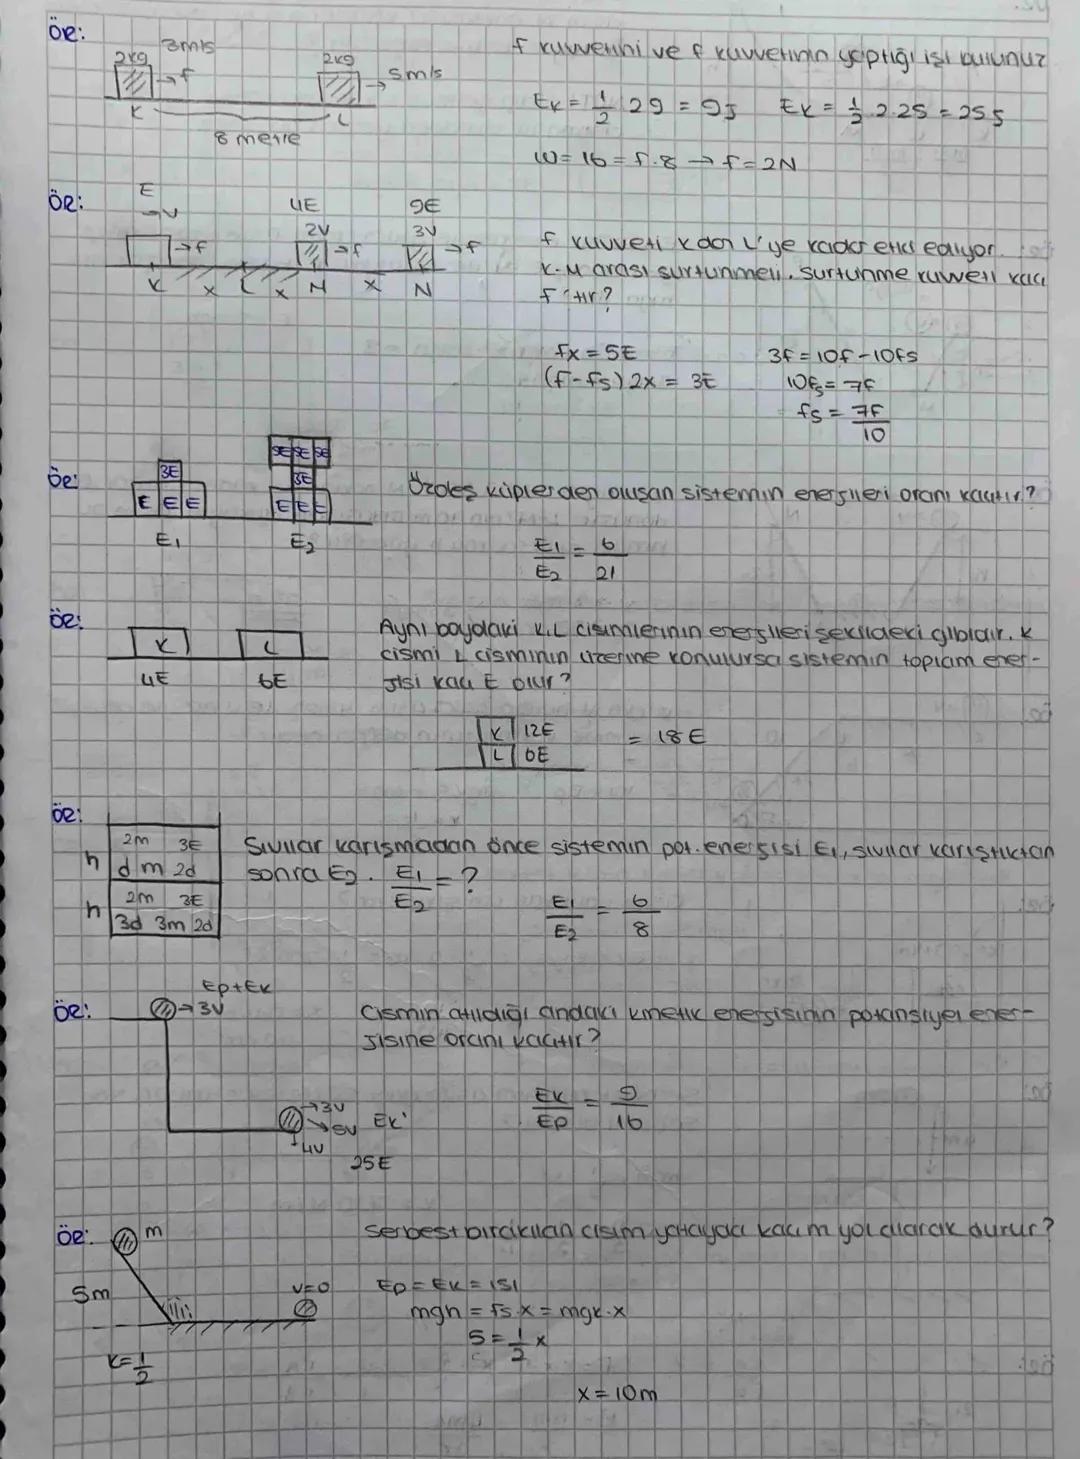 ÖR:
2kg 3m/s
→f
2kg
5m/s
K L
8 metre
f kuvvetini ve f kuvvetinin yaptığı işi bulunuz
Ek = 1/2 2 9 = 9J Ek = 1/2 . 2 . 25 = 25 J
W = 16 = f . 8 → f = 2N
ÖR:
E 4E 9E
→V 2V 3V
→f →f →f
K x L x M x N
f kuvveti K dan L'ye kadar etki ediyor.
K-M arası sürtünmeli. Sürtünme kuvveti kaç
f 'tir?
fx = 5E 3f = 10f - 10fs
(f - fs) 2x = 3E 10fs = 7f
fs = 7f/10
ÖR:
3E
E E E
E1
5E 5E 5E
3E
E E E
E2
Özdeş küplerden oluşan sistemin enerjileri oranı kaçtır?
E1/E2 = 6/21
ÖR:
K L
4E 6E
Aynı boydaki K,L cisimlerinin enerjileri şekildeki gibidir. K
cismi L cisminin üzerine konulursa sistemin toplam ener-
jisi kaç E olur?
K 12E
L 6E
= 18E
ÖR:
h 2m 3E
d m 2d
h 2m 3E
3d 3m 2d
Sıvılar karışmadan önce sistemin pot. enerjisi E1, sıvılar karıştıktan
sonra E2. E1/E2 = ?
E1/E2 = 6/8
ÖR:
Ep+Ek
→3V
→3V
5V Ek'
4V
25E
Cismin atıldığı andaki kinetik enerjisinin potansiyel ener-
jisine oranı kaçtır?
Ek/Ep = 9/16
ÖR:
m
5m
V=0
k = 1/2
Serbest bırakılan cisim yatayda kaç m yol alarak durur?
Ep = Ek = ısı
mgh = fs . x = mgk . x
5 = 1/2 x
x = 10m